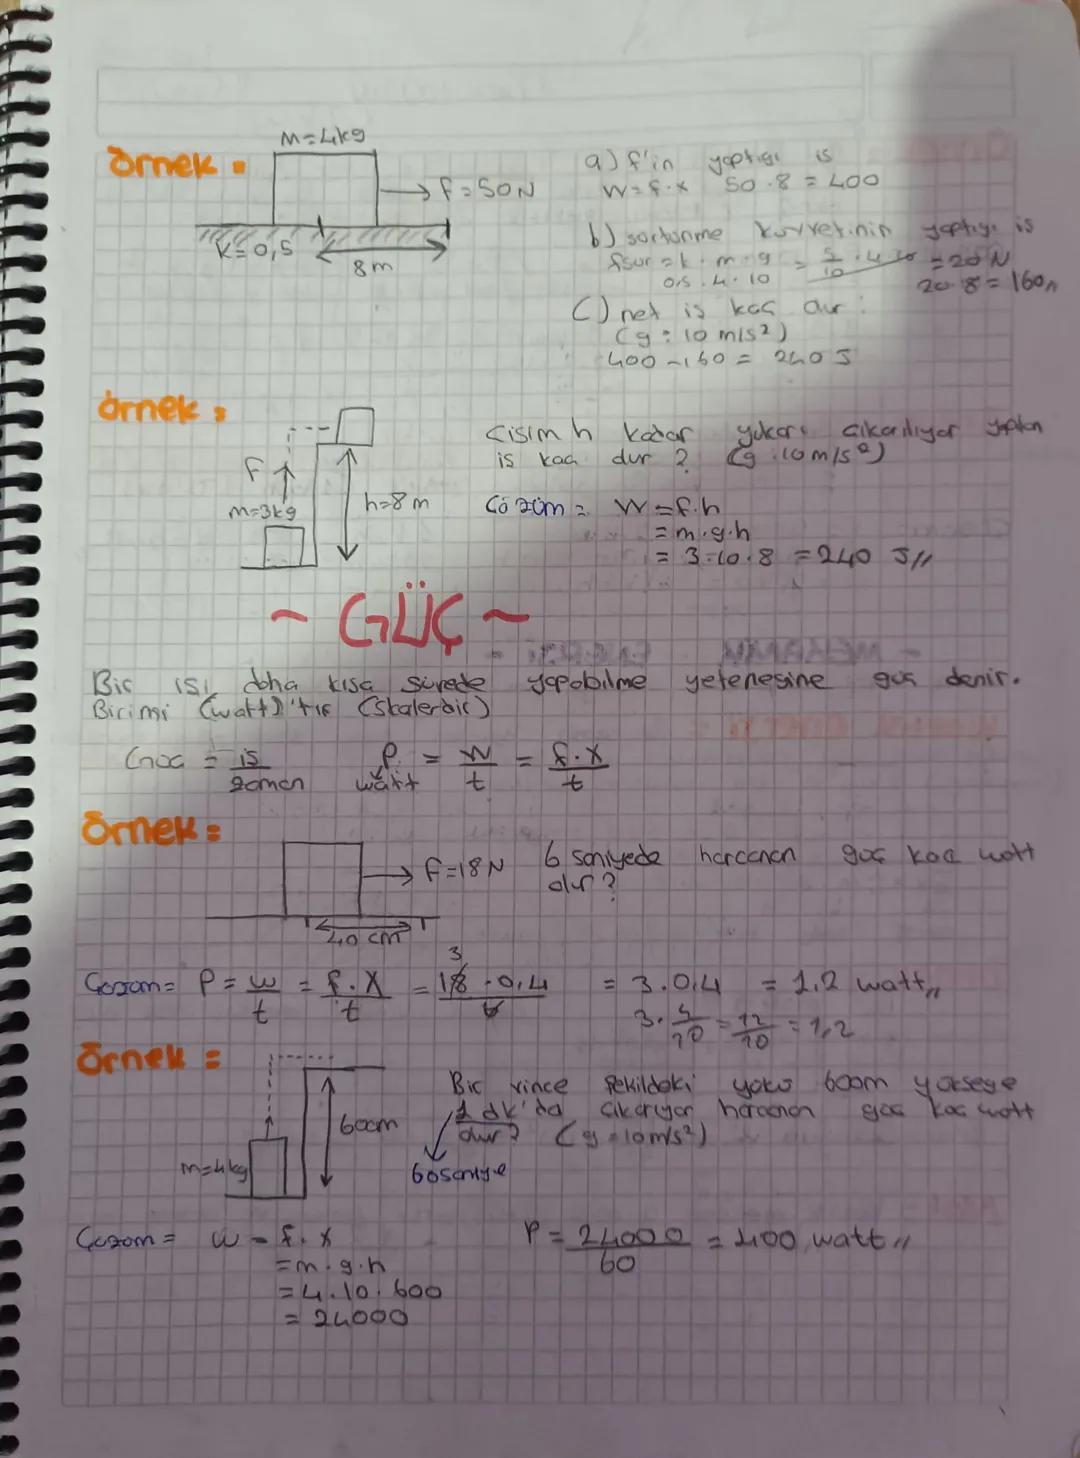 örnek =
M=4kg
F=50N
K=0,5
8m
a) f'in yaptığı is
W=f.x 50.8=400
b) sürtünme kuvvetinin yaptığı is
fsür=k.m.g = 5/10 . 4.10 = 20 N
0,5.4.10 20.8=160
C) net is kaç dır :
(g=10 m/s²)
400-160= 240 J
örnek =
F
m=3kg
h=8m
Cisim h kadar yukarı çıkarılıyor yapılan
is kaç dur ? (g:10m/s²)
Çözüm = W=f.h
=m.g.h
= 3.10.8 =240 J//
~ GÜÇ ~
Bir işi daha kısa sürede yapabilme yetenesine güç denir.
Birimi (watt)'tır (Skalerdir)
Güç = is/zaman P = W/t = f.x/t
watt
örnek =
F=18N
40 cm
6 saniyede harcanan güç kaç watt
dır?
Çözüm= P= w/t = f.x/t = 18.0,4/6 = 3.0,4 = 1,2 watt,,
3
3.4/10=12/10=1,2
örnek =
m=4kg
600m
Bir vince şekildeki yükü 600m yükseğe
1 dk'da çıkarıyor harcanan güç kaç watt
dur? (g=10m/s²)
60saniye
Çözüm = W = f.x
=m.g.h
=4.10.600
= 24000
P= 24000/60 = 400 watt //